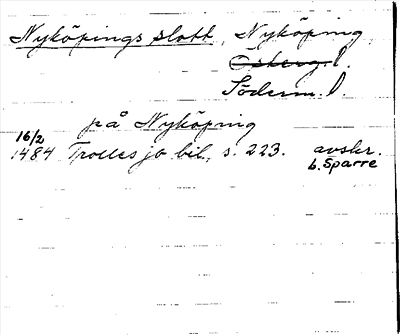 Nyköpings slott, Nyköping
Österg. l.
Söderm. l.
på Nyköping
16/2
1484 Trolles jo bil., s. 223. avskr.
b. Sparre